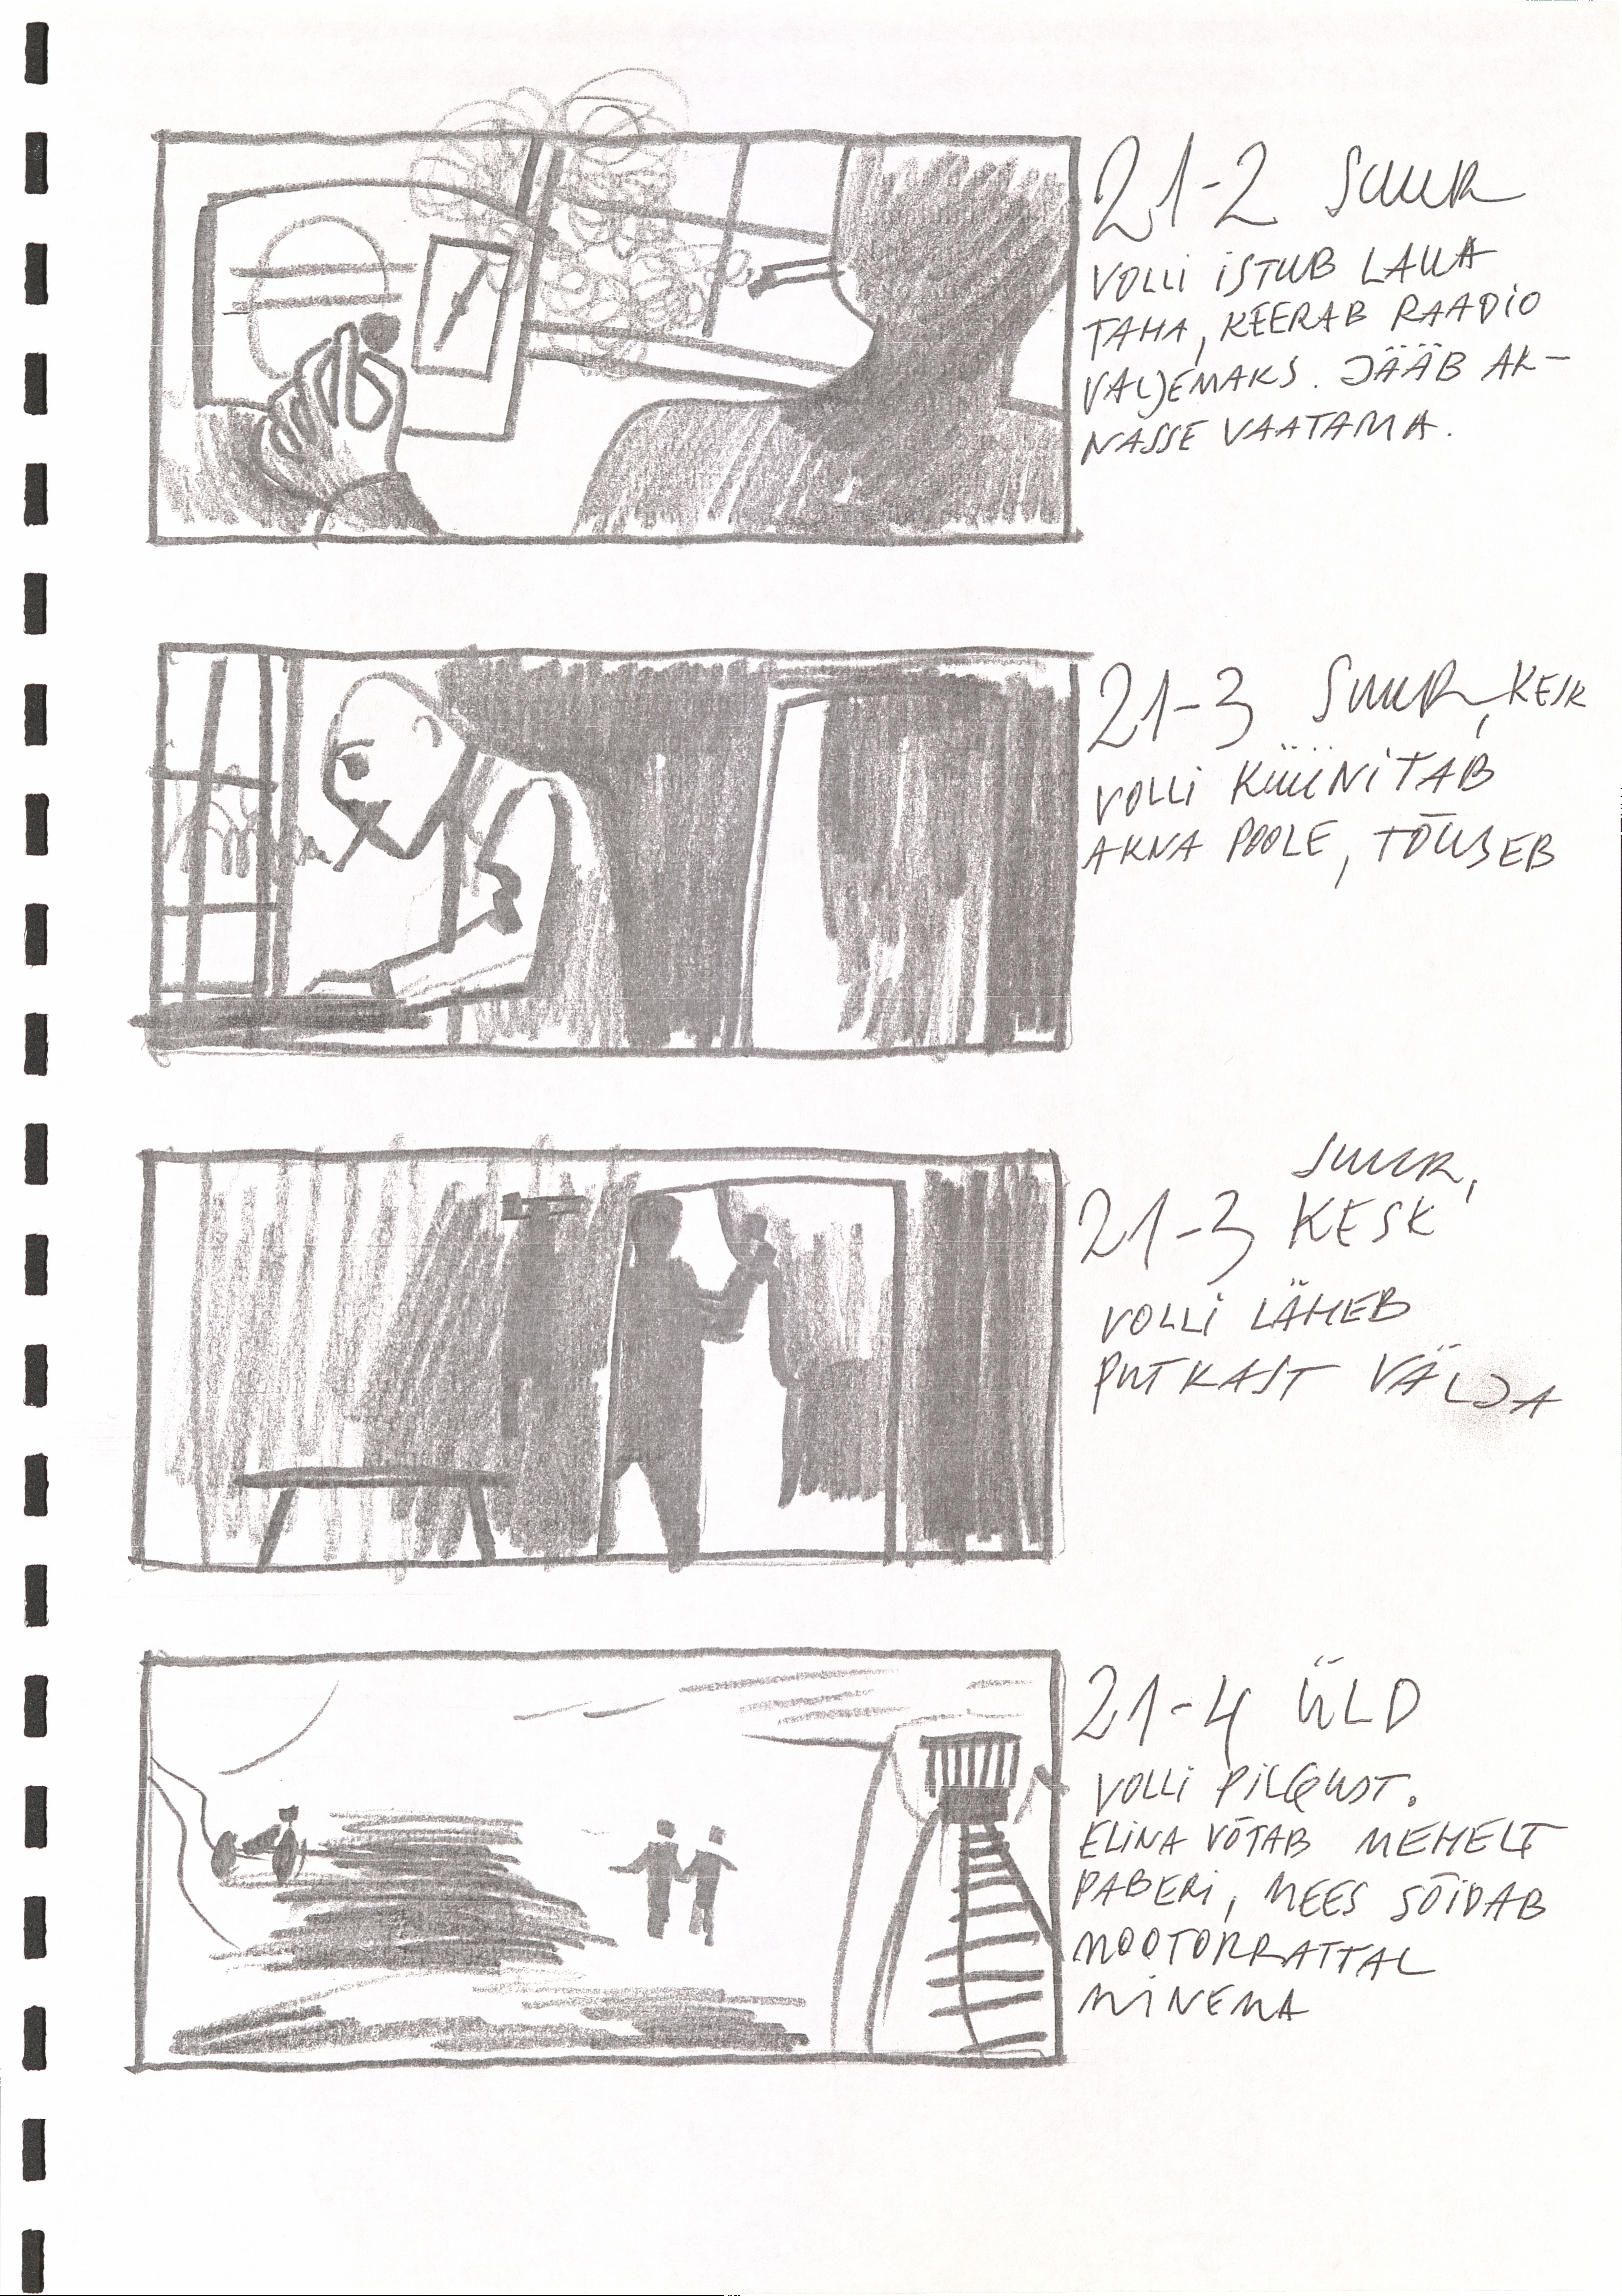 21-2 SUUR
VOLLI ISTUB LAUA
TAHA, KEERAB RAADIO
VALJEMAKS. JÄÄB AK-
NASSE VAATAMA.
21-3 SUUR, KESK
VOLLI KÜÜNITAB
AKNA POOLE, TÕUSEB
SUUR,
21-3 KESK
VOLLI LÄHEB
PUTKAST VÄLJA
21-4 ÜLD
VOLLI PILGUST.
ELINA VÕTAB MEHELT
PABERI, MEES SÕIDAB
MOOTORRATTAL
MINEMA